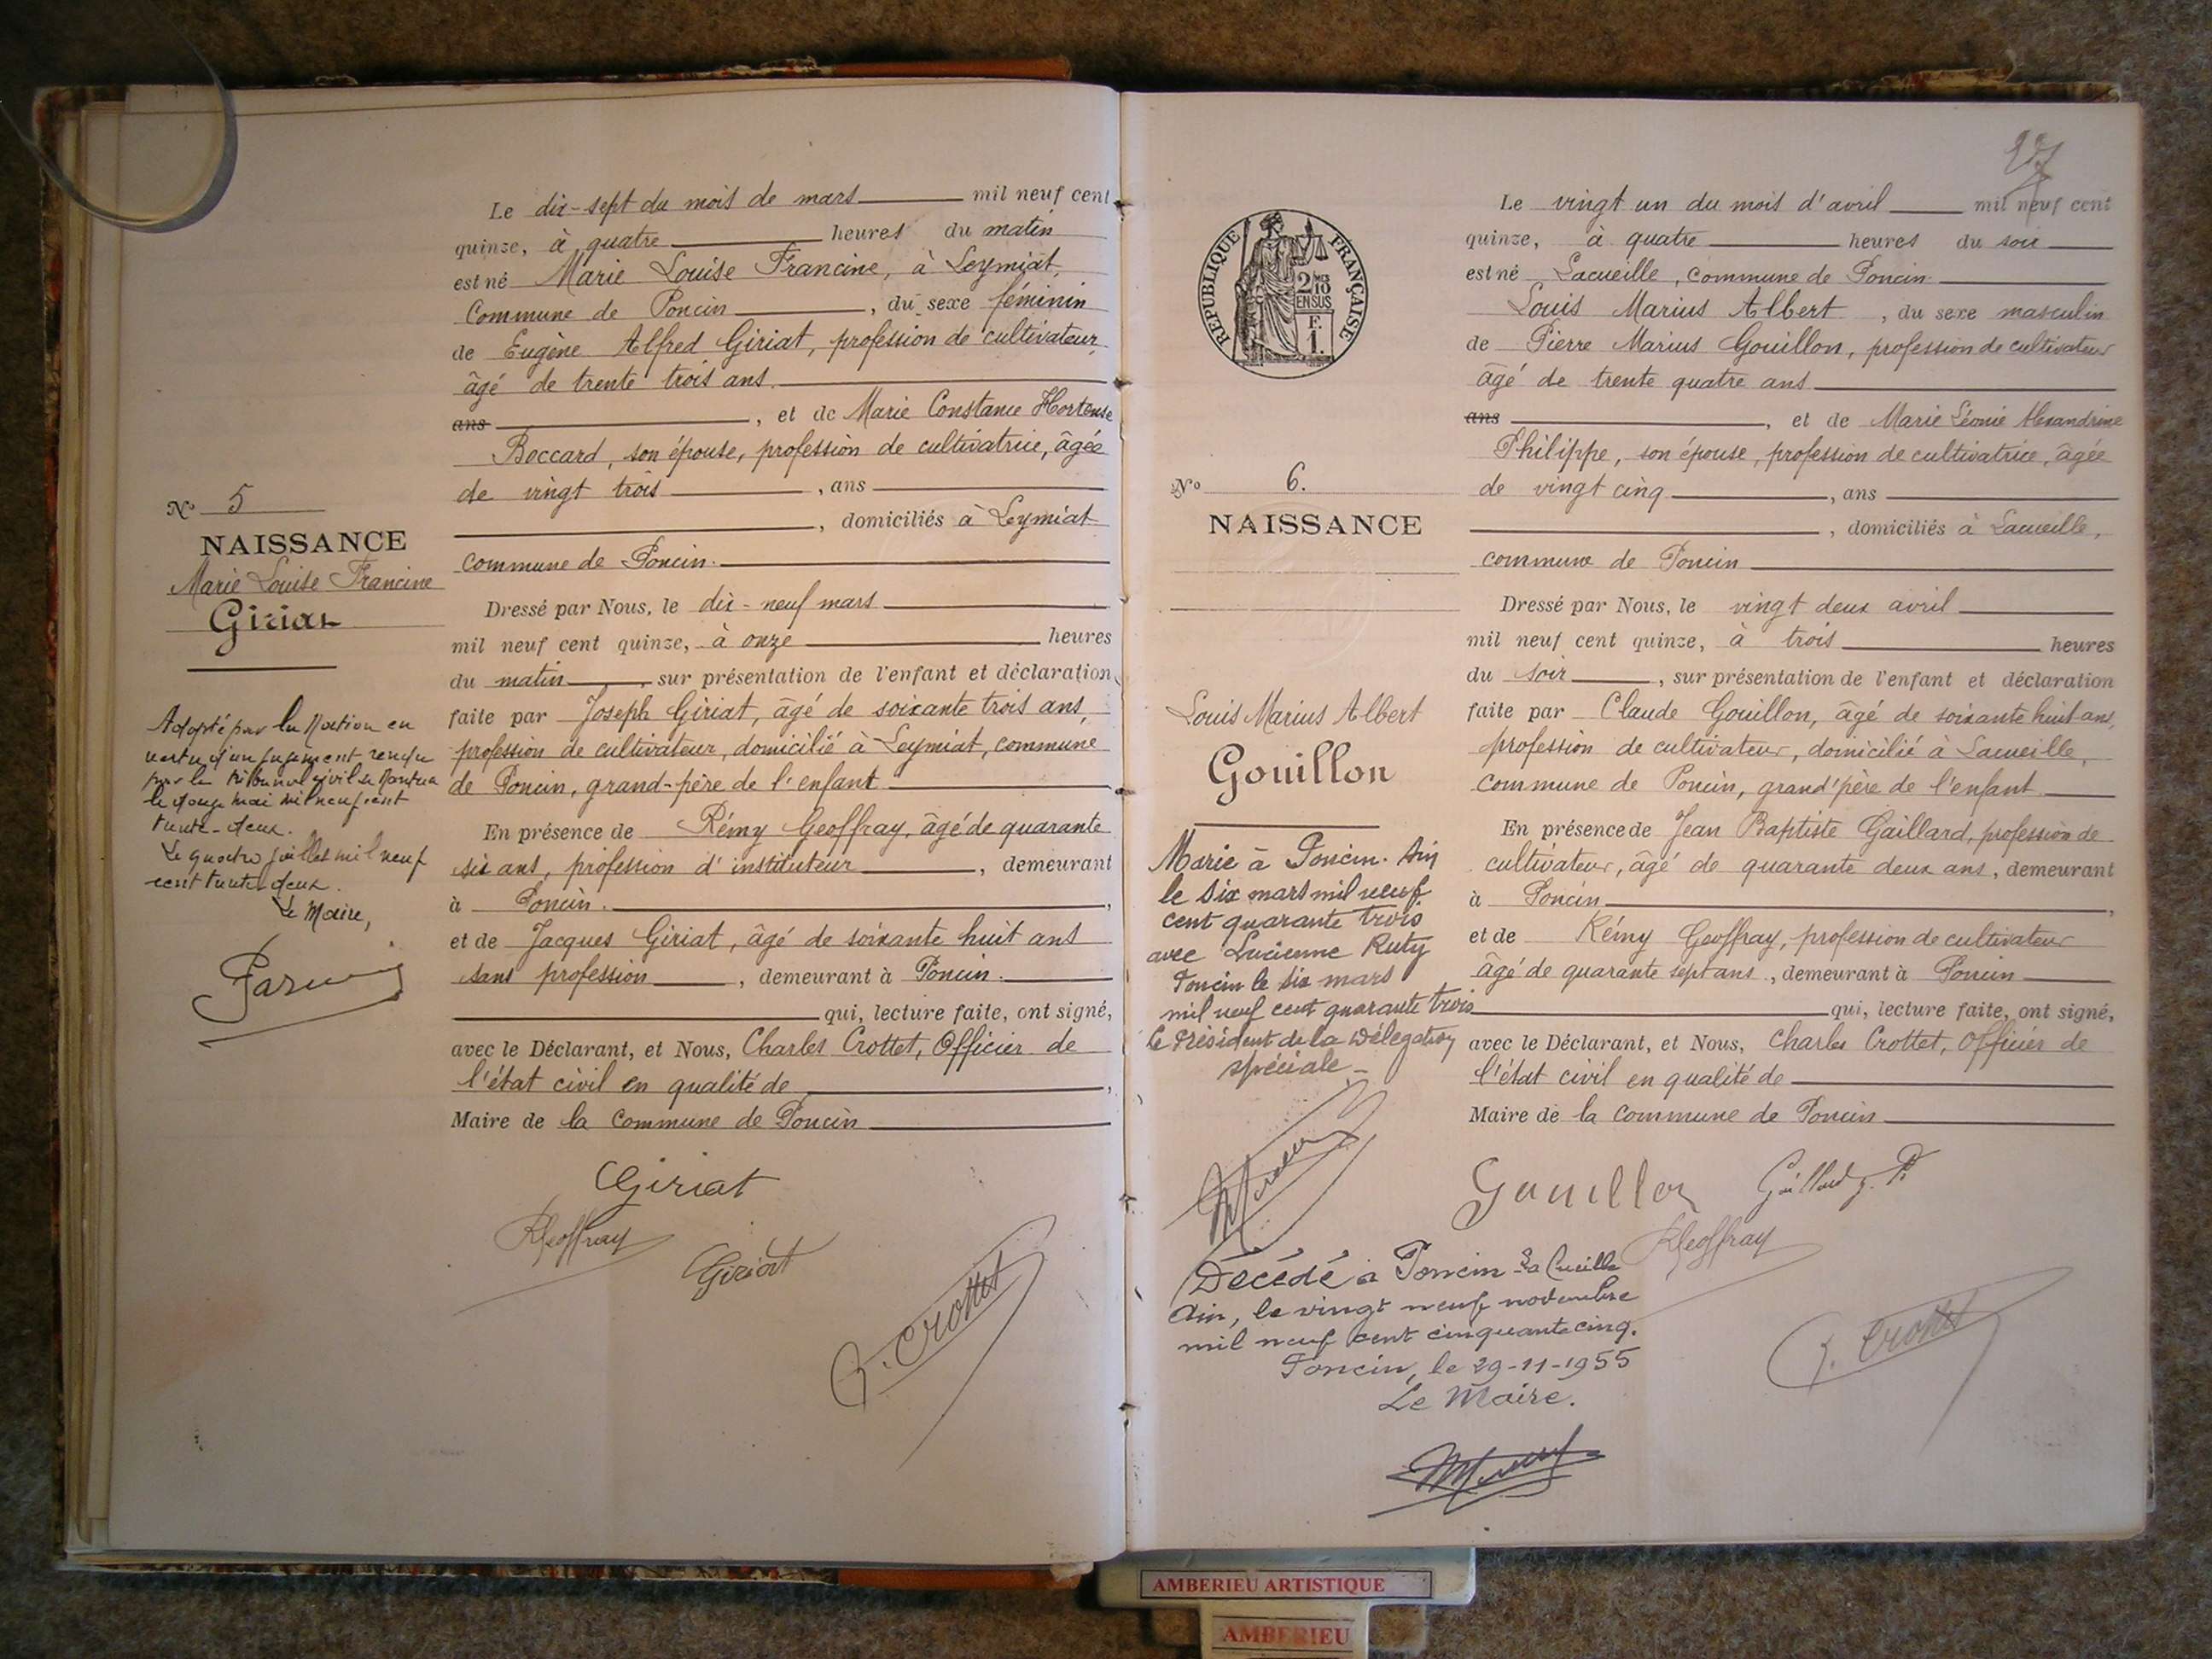 Le dix-sept du mois de mars mil neuf cent
quinze, à quatre heures du matin
est né Marie Louise Francine, à Leymiat,
Commune de Poncin, du sexe féminin
de Eugène Alfred Giriat, profession de cultivateur,
âgé de trente trois ans.
ans, et de Marie Constance Hortense
Boccard, son épouse, profession de cultivatrice, âgée
de vingt trois, ans
, domiciliés à Leymiat
commune de Poncin.
Dressé par Nous, le dix-neuf mars
mil neuf cent quinze, à onze heures
du matin, sur présentation de l'enfant et déclaration
faite par Joseph Giriat, âgé de soixante trois ans,
profession de cultivateur, domicilié à Leymiat, commune
de Poncin, grand-père de l'enfant
En présence de Rémy Geoffray, âgé de quarante
six ans, profession d'instituteur, demeurant
à Poncin.,
et de Jacques Giriat, âgé de soixante huit ans
sans profession, demeurant à Poncin.
qui, lecture faite, ont signé,
avec le Déclarant, et Nous, Charles Crottet, Officier de
l'état civil en qualité de,
Maire de la Commune de Poncin
Giriat
RGeoffray
Giriat
C. Crottet
No 5
NAISSANCE
Marie Louise Francine
Giriat
Adopté par la Nation en
vertu d'un jugement rendu
par le tribunal civil de Nantua
le douze mai mil neuf cent
trente-deux.
Le quatre juillet mil neuf
cent trente deux.
Le Maire,
27
REPUBLIQUE FRANÇAISE
2/10
EN SUS
F.
1.
No 6.
NAISSANCE
Louis Marius Albert
Gouillon
Marié à Poncin. Ain
le six mars mil neuf
cent quarante trois
avec Lucienne Ruty
Poncin le six mars
mil neuf cent quarante trois
le Président de la Délégation
spéciale
Décédé à Poncin La Cueille
Ain, le vingt neuf novembre
mil neuf cent cinquante cinq.
Poncin, le 29-11-1955
Le Maire.
Le vingt un du mois d'avril mil neuf cent
quinze, à quatre heures du soir
est né Lacueille, commune de Poncin
Louis Marius Albert, du sexe masculin
de Pierre Marius Gouillon, profession de cultivateur
âgé de trente quatre ans
ans, et de Marie Léonie Alexandrine
Philippe, son épouse, profession de cultivatrice, âgée
de vingt cinq, ans
, domiciliés à Lacueille,
commune de Poncin
Dressé par Nous, le vingt deux avril
mil neuf cent quinze, à trois heures
du soir, sur présentation de l'enfant et déclaration
faite par Claude Gouillon, âgé de soixante huit ans,
profession de cultivateur, domicilié à Lacueille,
commune de Poncin, grand'père de l'enfant
En présence de Jean Baptiste Gaillard, profession de
cultivateur, âgé de quarante deux ans, demeurant
à Poncin,
et de Rémy Geoffray, profession de cultivateur
âgé de quarante sept ans, demeurant à Poncin
qui, lecture faite, ont signé,
avec le Déclarant, et Nous, Charles Crottet, Officier de
l'état civil en qualité de
Maire de la Commune de Poncin
Gouillon
Gaillard J. B
RGeoffray
C. Crottet
AMBERIEU ARTISTIQUE
AMBERIEU